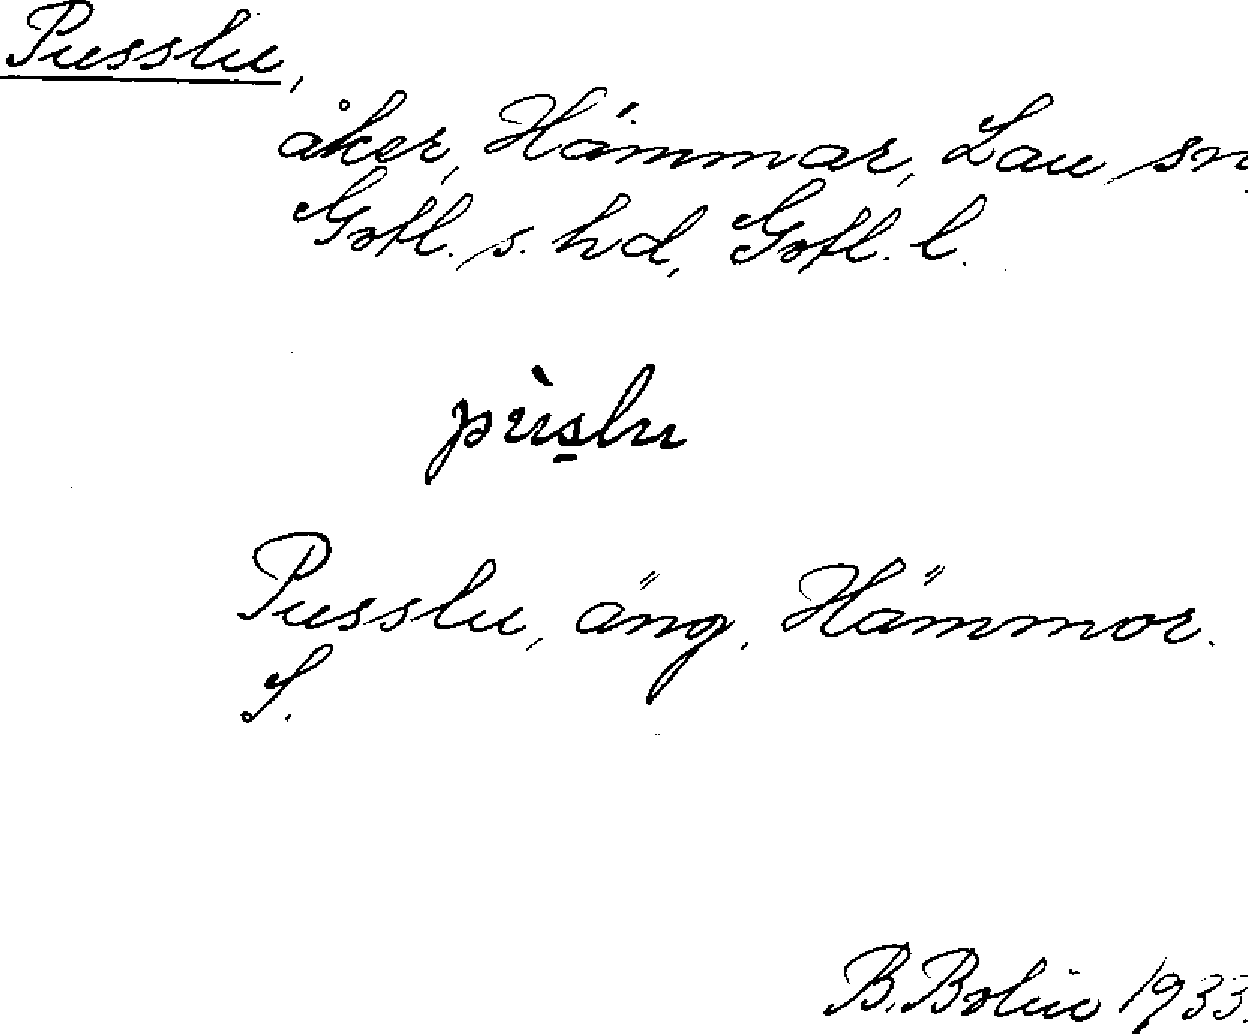 Pusslu,
åker, Hämmar, Lau sn,
Gotl. s. hd, Gotl. l.
pùs̱lu
Pusslu, äng, Hämmor.
S.
B. Bolin 1933.